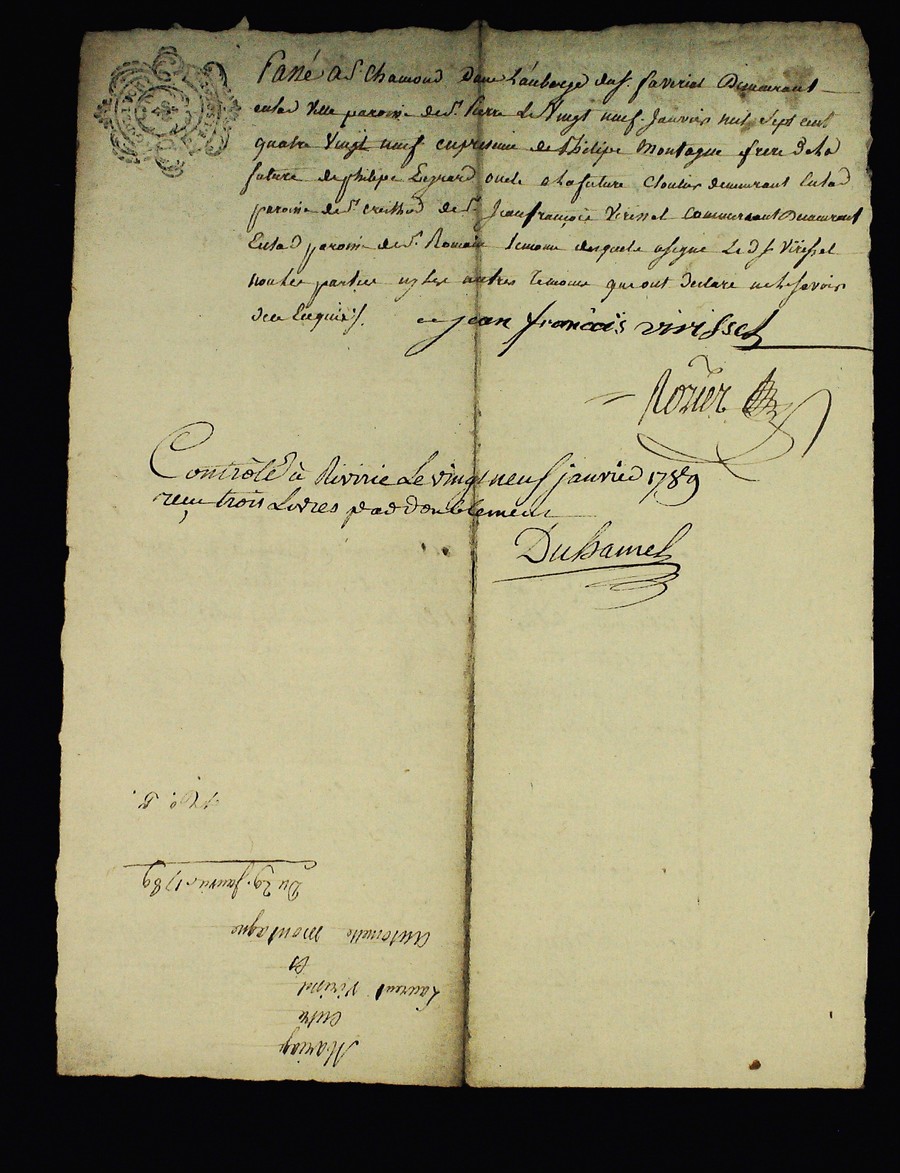 Passé A St Chamond dans L'auberge du sr. faveriat Demeurant
en lad ville paroisse de st. Pierre Le Vingt neuf Janvier mil sept cent
quatre Vingt neuf en presence de philipe Montagne frere de la
future de philipe Legrand oncle a la future Cloutier demeurant en lad
paroisse de st de sr. Jean françois Virisset Commersant Demeurant
En lad paroisse de st. Romain temoins desquels a signé Led. sr Virisset
non les parties ny les autres temoins qui ont declaré ne le savoir
de ce Enquis
jean françois virissel
Rozier
Contrôlé à Riverie Le vingt neuf janvier 1789
reçu trois Livres par doublement
DuHamel
Mariage
entre
Laurent Virissel
et
antoinette montagne
Du 29. Janvier 1789